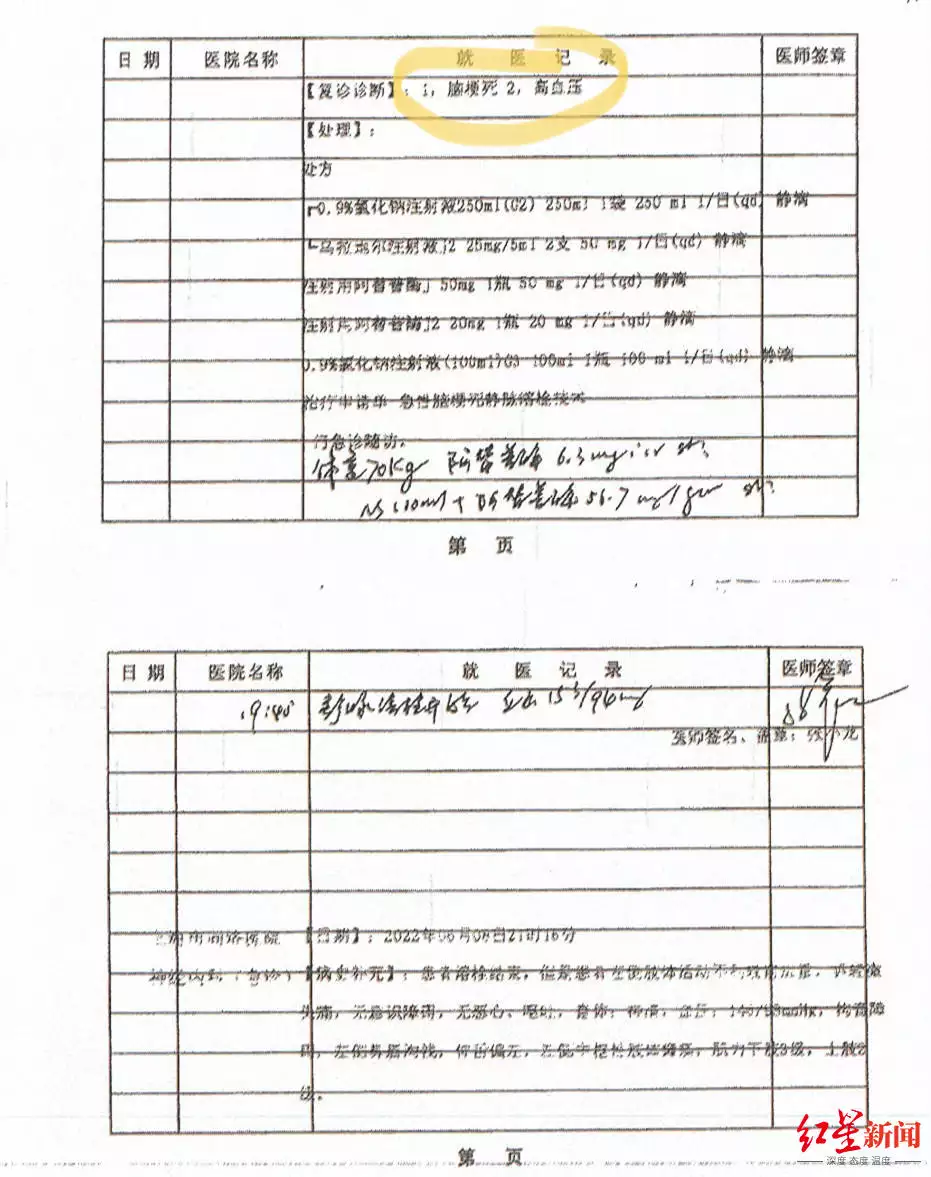 日期 医院名称 就医记录 医师签章
【复诊诊断】：1，脑梗死 2，高血压
【处理】：
处方
┏0.9%氯化钠注射液250ml(C2) 250ml 1袋 250 ml 1/日(qd) 静滴
┗乌拉地尔注射液j2 25mg/5ml 2支 50 mg 1/日(qd) 静滴
注射用阿替普酶j 50mg 1瓶 50 mg 1/日(qd) 静滴
注射用阿替普酶j2 20mg 1瓶 20 mg 1/日(qd) 静滴
0.9%氯化钠注射液(100ml)G3 100ml 1瓶 100 ml 1/日(qd) 静滴
治疗申请单 急性脑梗死静脉溶栓技术
行急诊随访。
体重70Kg 阿替普酶 6.3mg iv st
NS 100ml + 阿替普酶 56.7mg st
第 页
日期 医院名称 就医记录 医师签章
19:45 静脉溶栓开始
医师签名、盖章：张小龙
【日期】：2022年06月08日21时16分
神经内科（急诊）【病史补充】：患者溶栓结束，
头痛，无意识障碍，无恶心、呕吐，查体：神清，血压：mmHg，构音障
碍，左侧鼻唇沟浅，伸舌偏左，左侧中枢性肢体瘫痪，肌力下肢3级，上肢2
级。
红星新闻
深度 态度 温度
第 页